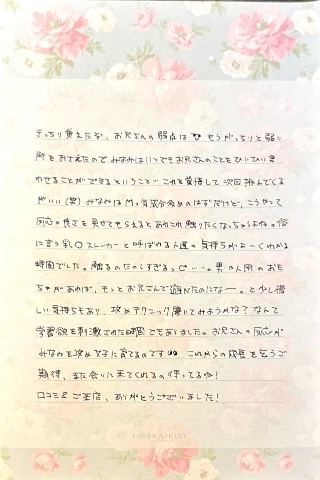 きっちり覚えたな、お兄さんの弱点は もうがっちりと弱い
所をおさえたのでみなみはいつでもお兄さんのことをひぃひぃ言
わせることができるということ… これを覚悟して次回挑んでくる
がいい(笑) みなみはM気質分多めのはずだけど、こうやって
反応の良さを見せてもらえるとあれこれ触りたくなっちゃうよね。俗
に言う乳○スレーカーと呼ばれる人達の気持ちがよ〜くわかる
時間でした。触るのたのしすぎるって…。男の人用のおも
ちゃがあれば、もっとお兄さんで遊んだのになー。と少し惜し
い気持ちもあり、攻めテクニック磨いてみようかな?なんて
学習欲を刺激された時間でもありました。お兄さんの反応が
みなみを攻め女子に育てるのです これからの成長を乞うご
期待、また会いに来てくれるの待ってるね!
口コミ&ご来店、ありがとうございました!
LAURA ASHLEY